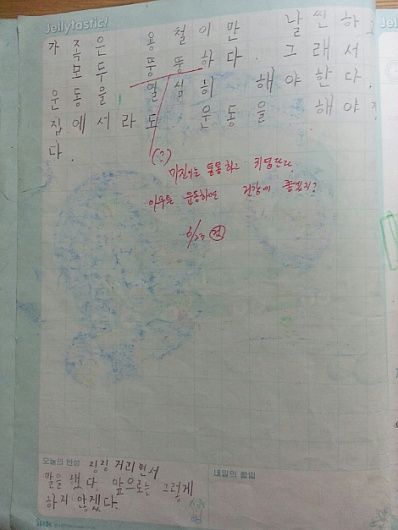 Jellytastic!
가 족 은 용 철 이 만 날 씬 하
모 두 뚱 뚱 하 다. 그 래 서
운 동 을 열 심 히 해 야 한 다.
집 에 서 라 도 운 동 을 해 야
다.
(?)
통통하고 귀엽
아무튼 운동하면 건강에 좋겠지?
6/23
오늘의 반성 징징 거리면서
말을 했다 앞으로는 그렇게
하지 않겠다.
내일의 할일